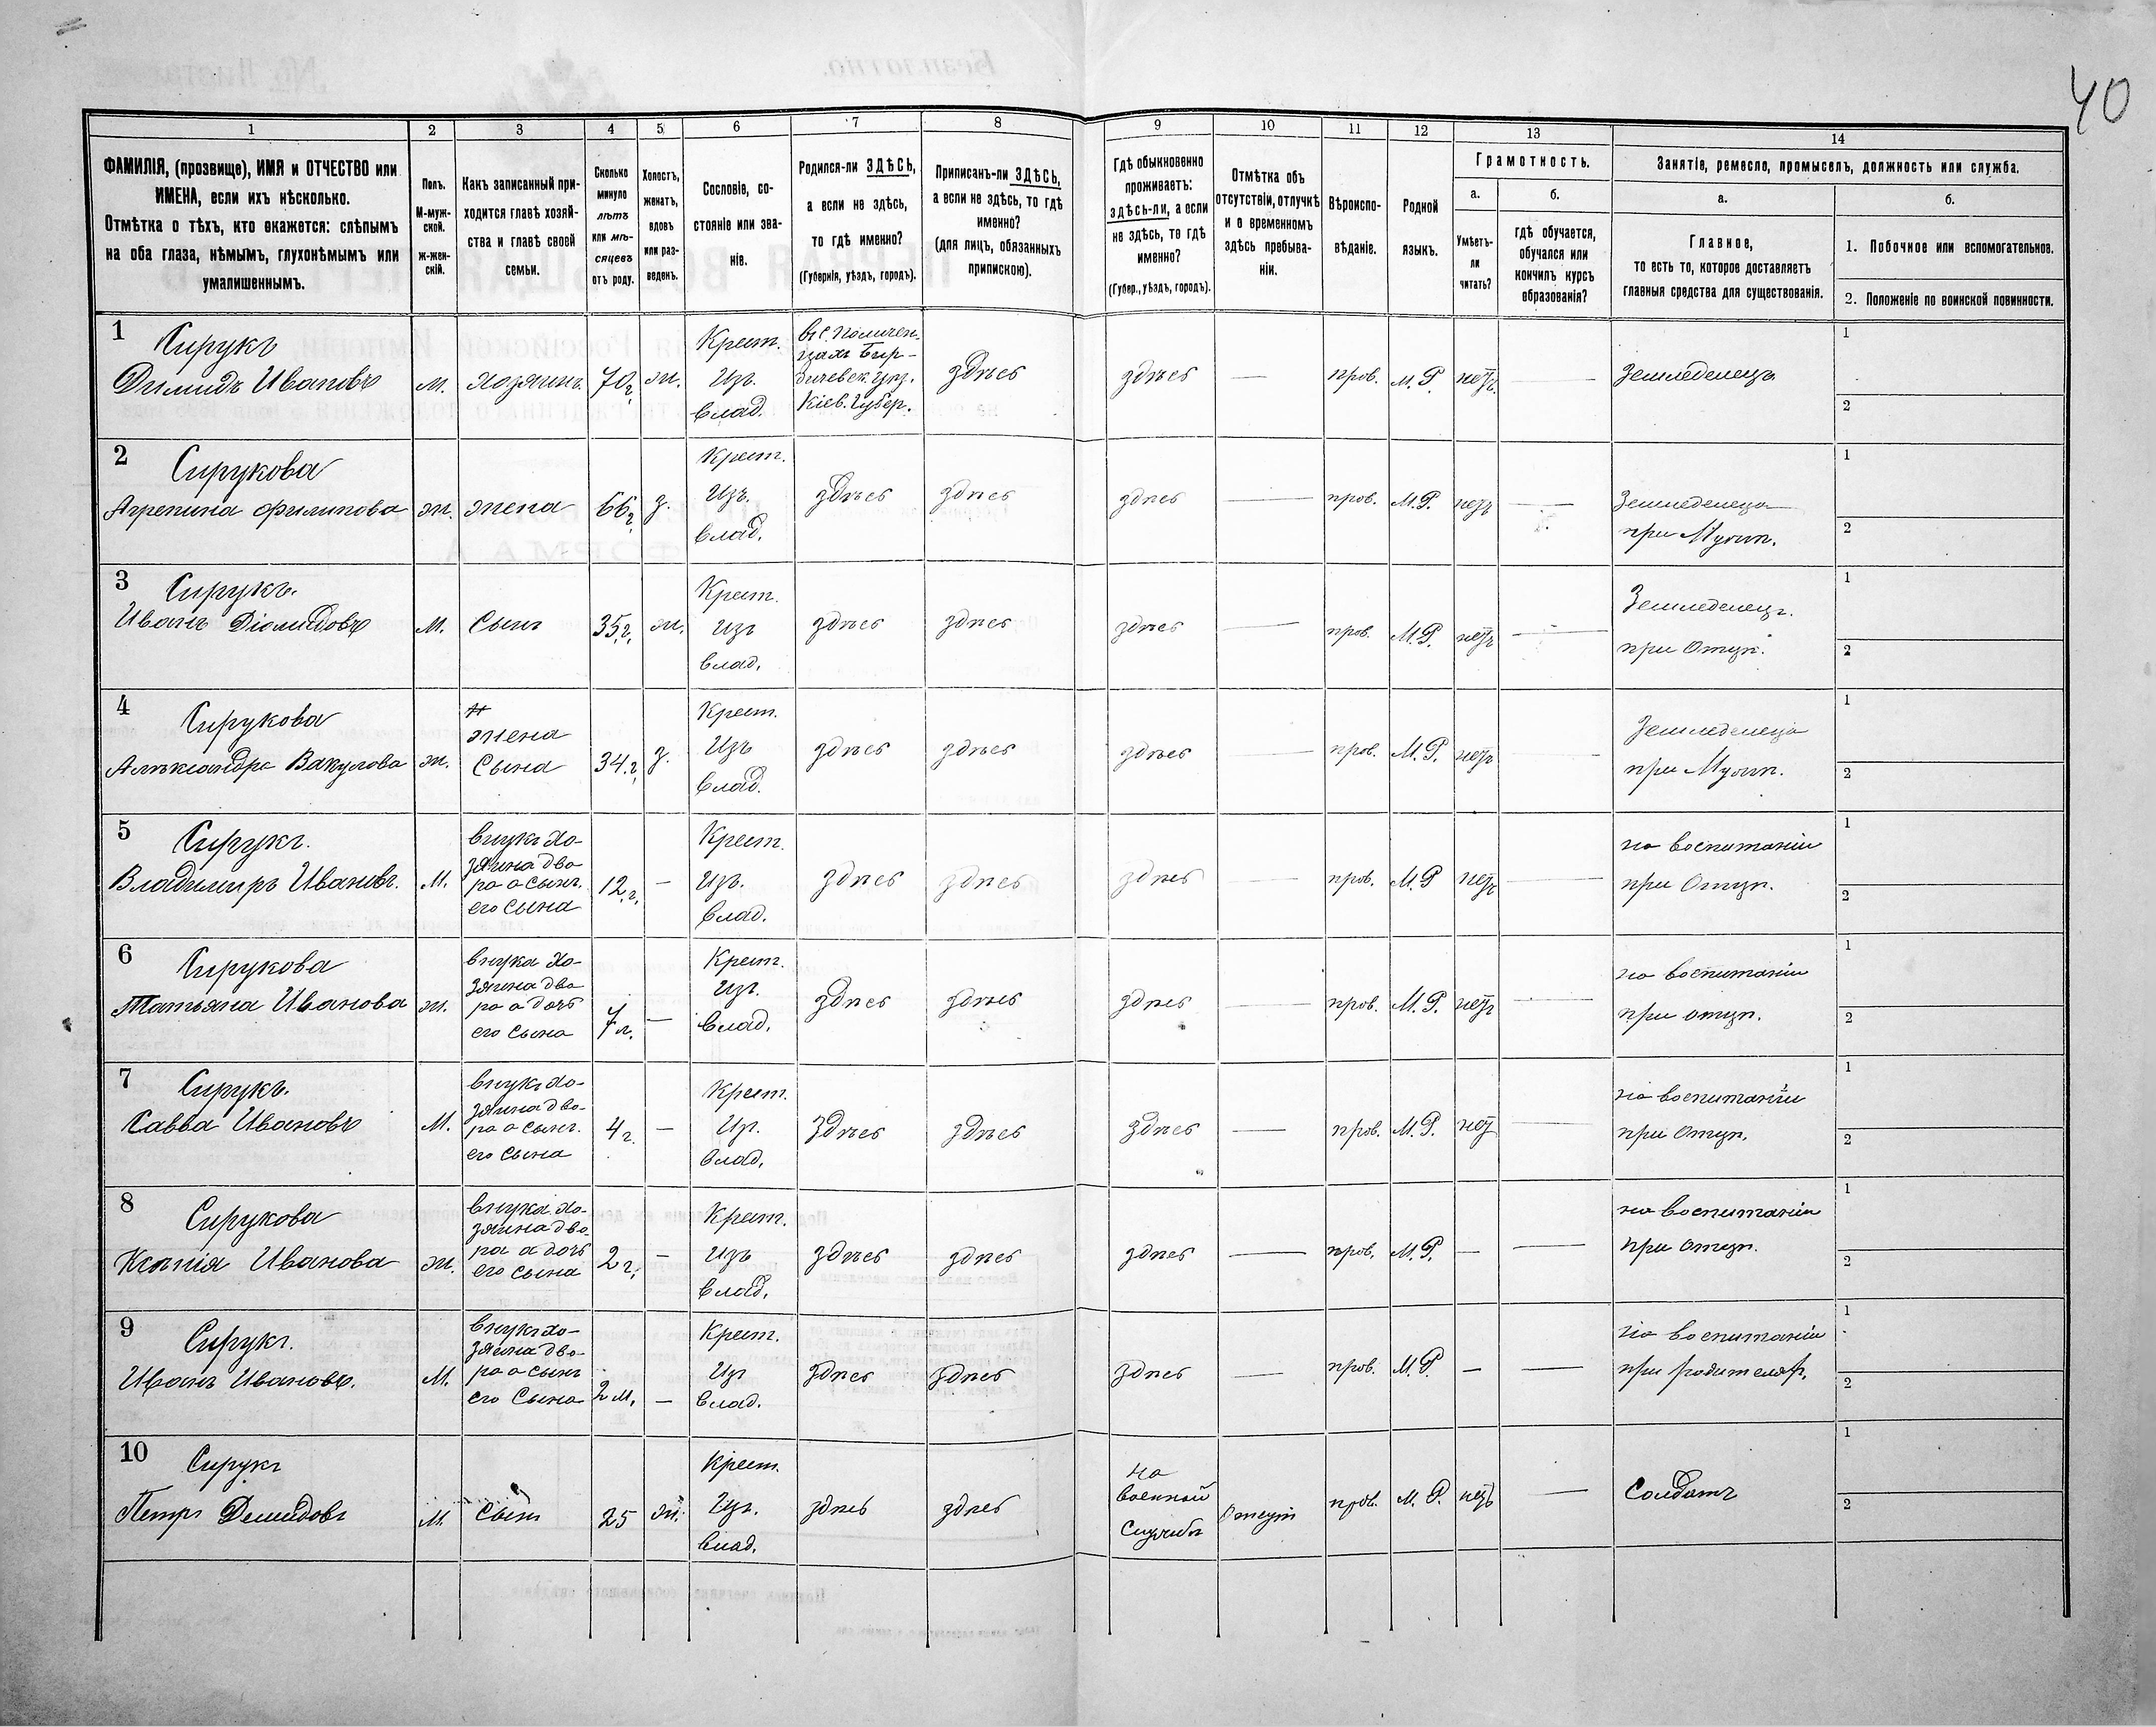 40
1
2
3
4
5
6
7
8
9
10
11
12
13
14
ФАМИЛІЯ, (прозвище), ИМЯ и ОТЧЕСТВО или
ИМЕНА, если ихъ нѣсколько.
Отмѣтка о тѣхъ, кто окажется: слѣпымъ
на оба глаза, нѣмымъ, глухонѣмымъ или
умалишеннымъ.
Полъ.
М-муж-
ской.
ж-жен-
скій.
Какъ записанный при-
ходится главѣ хозяй-
ства и главѣ своей
семьи.
Сколько
минуло
лѣтъ
или мѣ-
сяцевъ
отъ роду.
Холостъ,
женатъ,
вдовъ
или раз-
веденъ.
Сословіе, со-
стояніе или зва-
ніе.
Родился-ли ЗДѢСЬ,
а если не здѣсь,
то гдѣ именно?
(Губернія, уѣздъ, городъ).
Приписанъ-ли ЗДѢСЬ,
а если не здѣсь, то гдѣ
именно?
(для лицъ, обязанныхъ
припискою).
Гдѣ обыкновенно
проживаетъ:
здѣсь-ли, а если
не здѣсь, то гдѣ
именно?
(Губер., уѣздъ, городъ).
Отмѣтка объ
отсутствіи, отлучкѣ
и о временномъ
здѣсь пребыва-
ніи.
Вѣроиспо-
вѣданіе.
Родной
языкъ.
Грамотность.
а.
Умѣетъ-
ли
читать?
б.
гдѣ обучается,
обучался или
кончилъ курсъ
образованія?
Занятіе, ремесло, промыселъ, должность или служба.
а.
Главное,
то есть то, которое доставляетъ
главныя средства для существованія.
б.
1. Побочное или вспомогательное.
2. Положеніе по воинской повинности.
1 Сирукъ
Димидъ Ивановъ
м.
хозяинъ
70 г.
ж.
Крест.
Изъ.
влад.
Бир-
дичевск. уѣз.
Кіев. Губер.
здѣсь
здѣсь
—
прав.
М. Р.
нетъ.
—
Земледелецъ
1
2
2 Сирукова
Агрепина Филипова
ж.
жена
66 г.
з.
Крест.
Изъ.
влад.
здѣсь
здѣсь
здѣсь
—
прав.
М. Р.
нетъ
—
Земледелеца
при Мужи.
1
2
3 Сирукъ.
Иванъ Діомидовъ
М.
Сынъ
35 г.
ж.
Крест.
Изъ
влад.
здѣсь
здѣсь
здѣсь
—
прав.
М. Р.
нетъ
—
Земледелецъ.
при Отцѣ.
1
2
4 Сирукова
Алѣксандра Вакулова
ж.
жена
Сына
34 г.
з.
Крест.
Изъ
влад.
здѣсь
здѣсь
здѣсь
—
прав.
М. Р.
нетъ
—
Земледелеца
при Мужи.
1
2
5 Сирукъ.
Владимиръ Ивановъ.
М.
внукъ хо-
зяина дво-
ра а сынъ.
его Сына
12 г.
—
Крест.
Изъ.
влад.
здѣсь
здѣсь
здѣсь
—
прав.
М. Р
нетъ
—
на воспитаніи
при Отцѣ.
1
2
6 Сирукова
Татьяна Иванова
ж.
внука хо-
зяина дво-
ра а дочь
его Сына
7 л.
—
Крест.
Изъ.
влад.
здѣсь
здѣсь
здѣсь
—
прав.
М. Р.
нетъ
—
на воспитаніи
при отцѣ.
1
2
7 Сирукъ.
Савва Ивановъ
М.
внукъ хо-
зяина дво-
ра а сынъ.
его Сына
4 г.
—
Крест.
Из.
влад.
Здѣсь
здѣсь
здѣсь
—
прав.
М. Р.
нет
—
на воспитаніи
при Отцѣ.
1
2
8 Сирукова
Ксѣнія Иванова
ж.
внука хо-
зяина дво-
ра а дочь
его сына
2 г.
—
Крест.
Изъ
влад.
здѣсь
здѣсь
здѣсь
—
прав.
М. Р.
—
—
на воспитаніи
при отцѣ.
1
2
9 Сирукъ.
Иванъ Ивановъ.
М.
внукъ хо-
зяина дво-
ра а сынъ
его Сына
2 м.
—
Крест.
Из
влад.
здѣсь
здѣсь
здѣсь
—
прав.
М. Р.
—
—
на воспитаніи
при родителях.
1
2
10 Сирукъ
Петръ Демидовъ
М.
Сынъ
25
ж.
Крест.
Изъ.
влад.
здѣсь
здѣсь
на
военной
Службѣ
прав.
М. Р.
нетъ
—
Солдатъ
1
2